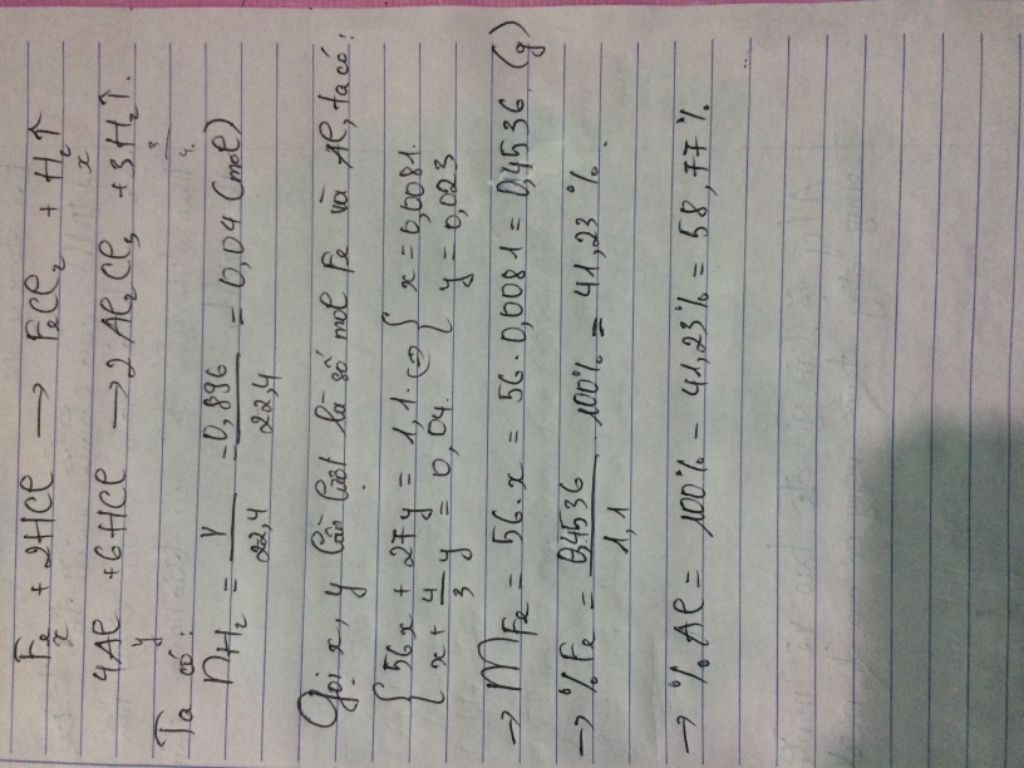 Fe + 2HCl → FeCl₂ + H₂↑
x x
4Al + 6HCl → 2Al₂Cl₃ + 3H₂↑.
y
Ta có:
nH₂ = V/22,4 = 0,896/22,4 = 0,04 (mol)
Gọi x, y lần lượt là số mol Fe và Al, ta có:
{ 56x + 27y = 1,1. (=) { x = 0,0081.
{ x + 4/3 y = 0,04. { y = 0,023
→ mFe = 56.x = 56.0,0081 = 0,4536 (g)
→ %Fe = 0,4536/1,1 . 100% = 41,23%.
→ %Al = 100% - 41,23% = 58,77%.